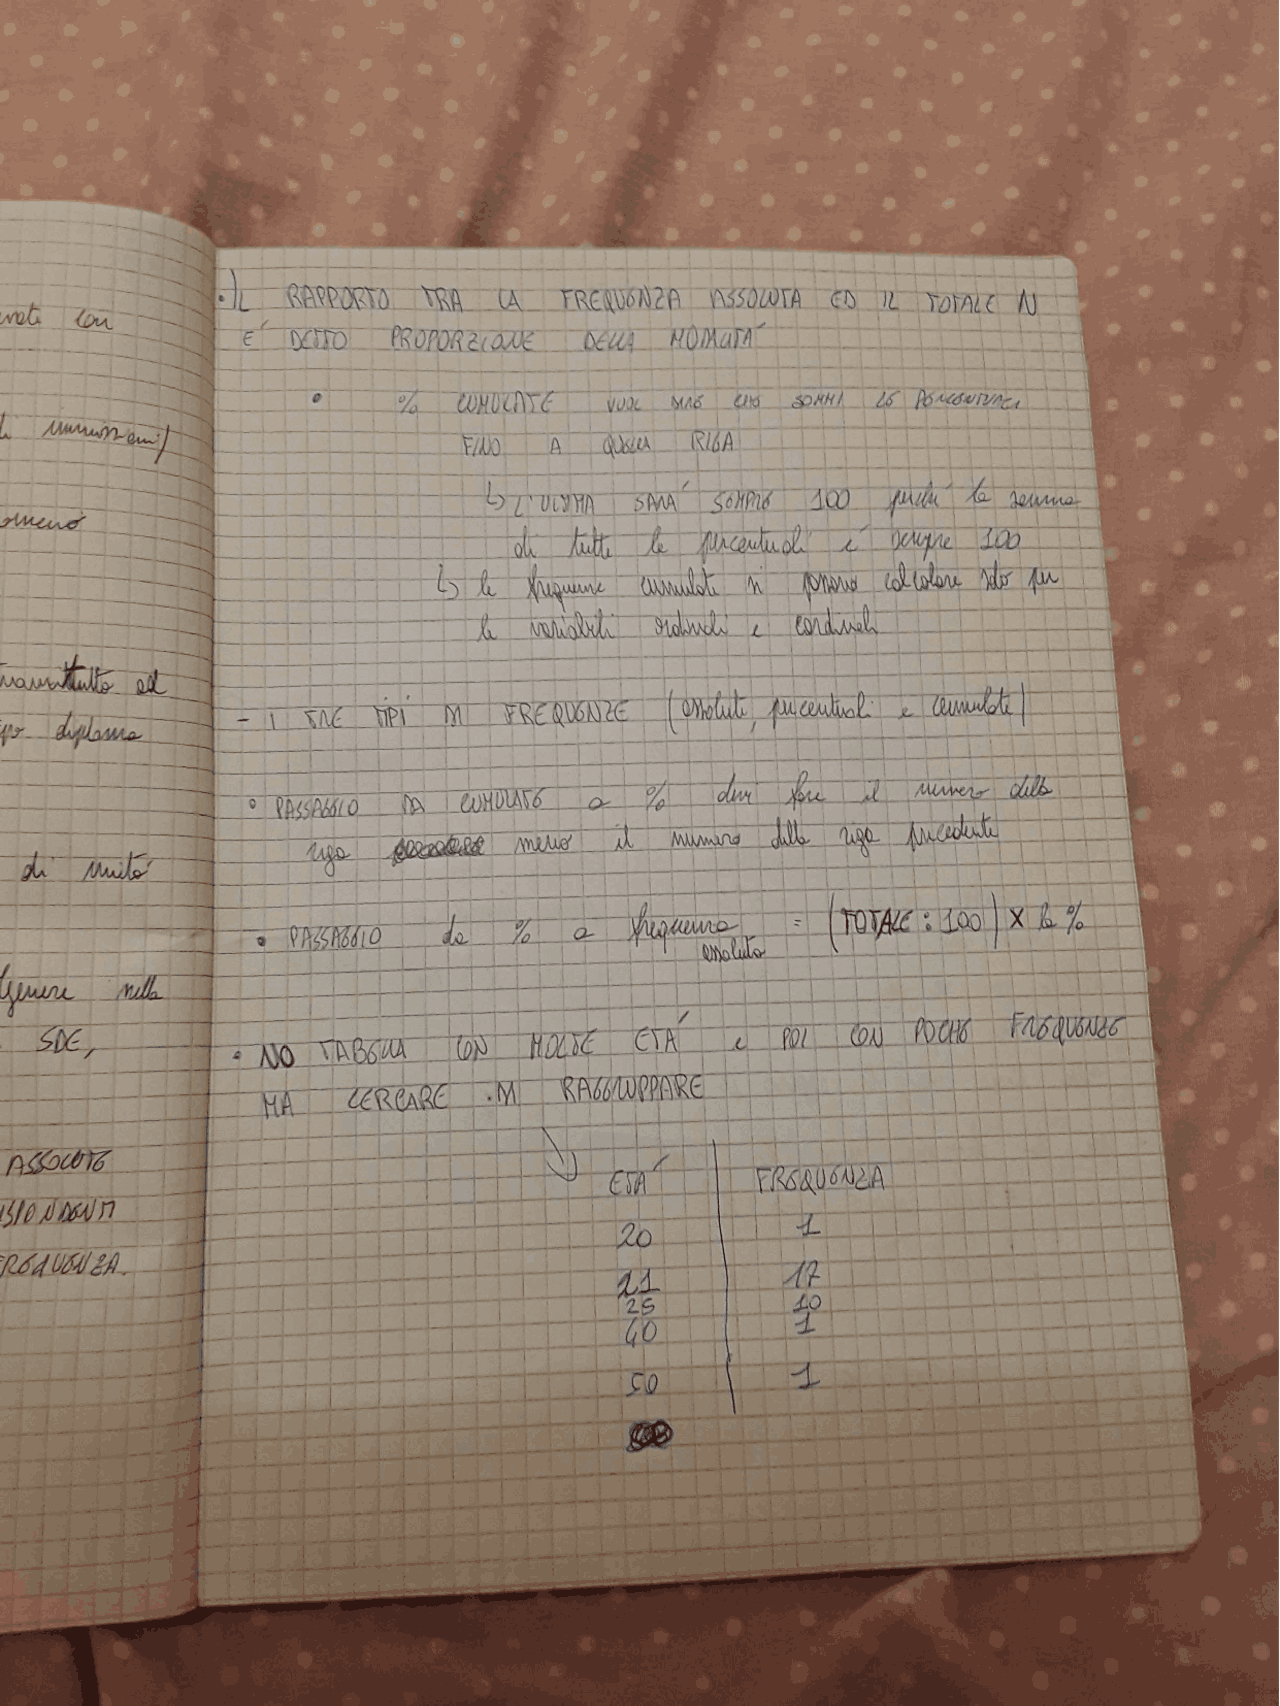 erate con
li immissemi)
omeno
innanzitutto ed
po- diploma
di unità
Genere nella
SDE,
ASSOLUTE
ISPONDENTI
FREQUENZA.
• IL RAPPORTO TRA LA FREQUENZA ASSOLUTA ED IL TOTALE N
E' DETTO PROPORZIONE DELLA MODALITA'
• % CUMULATE VUOL DIRE CHE SOMMI LE PERCENTUALI
FINO A QUELLA RIGA
↳ L'ULTIMA SARA' SEMPRE 100 perché la somma
di tutte le percentuali è sempre 100
↳ le frequenze cumulate si possono calcolare solo per
le variabili ordinali e cardinali
- I TRE TIPI DI FREQUENZE (assolute, percentuali e cumulate)
• PASSAGGIO DA CUMULATE a % devi fare il numero della
riga meno il numero della riga precedente
• PASSAGGIO da % a frequenza = (TOTALE : 100) X la %
assoluta
• NO TABELLA CON MOLTE ETA' e POI CON POCHE FREQUENZE
MA CERCARE DI RAGGRUPPARE
ETA' FREQUENZA
20 1
21 17
25 10
40 1
50 1